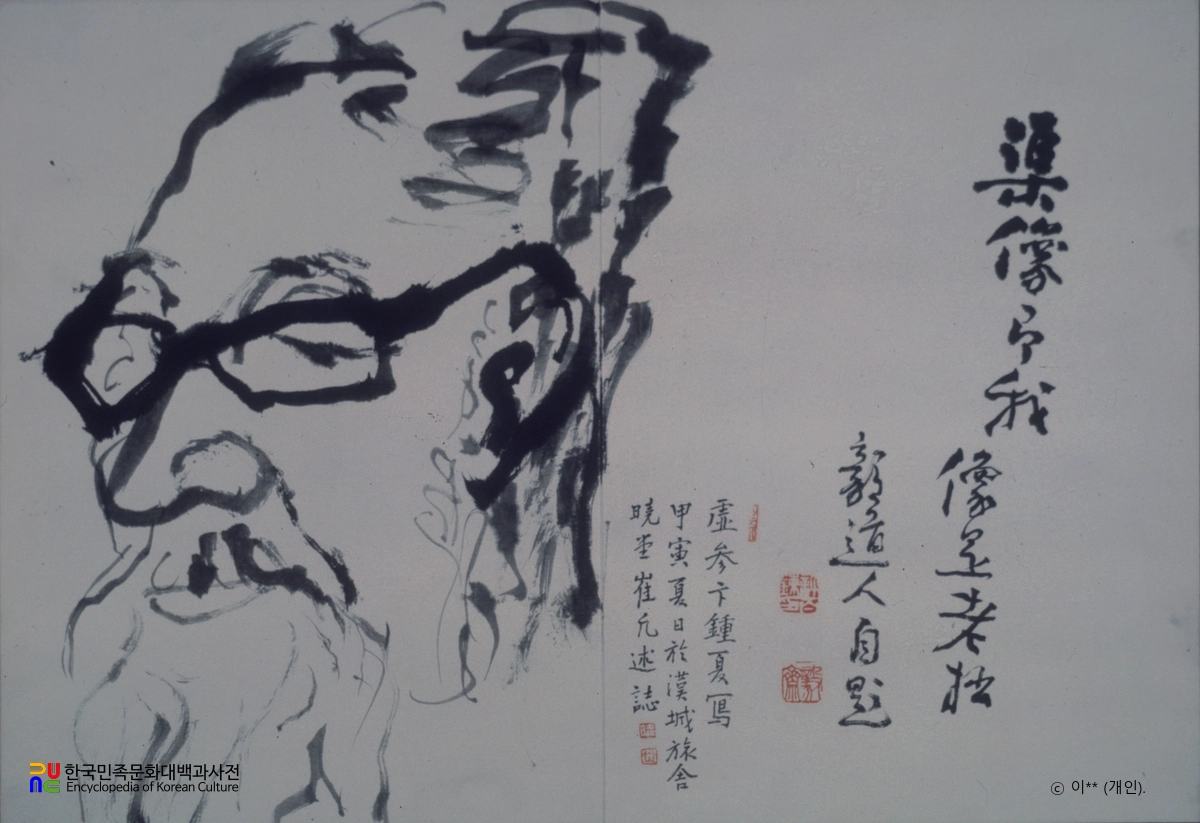 渠像予我
像是老拙
毅道人自題
虛參卞鍾夏寫
甲寅夏日於漢城旅舍
曉堂崔凡述誌
한국민족문화대백과사전
Encyclopedia of Korean Culture
ⓒ 이** (개인).